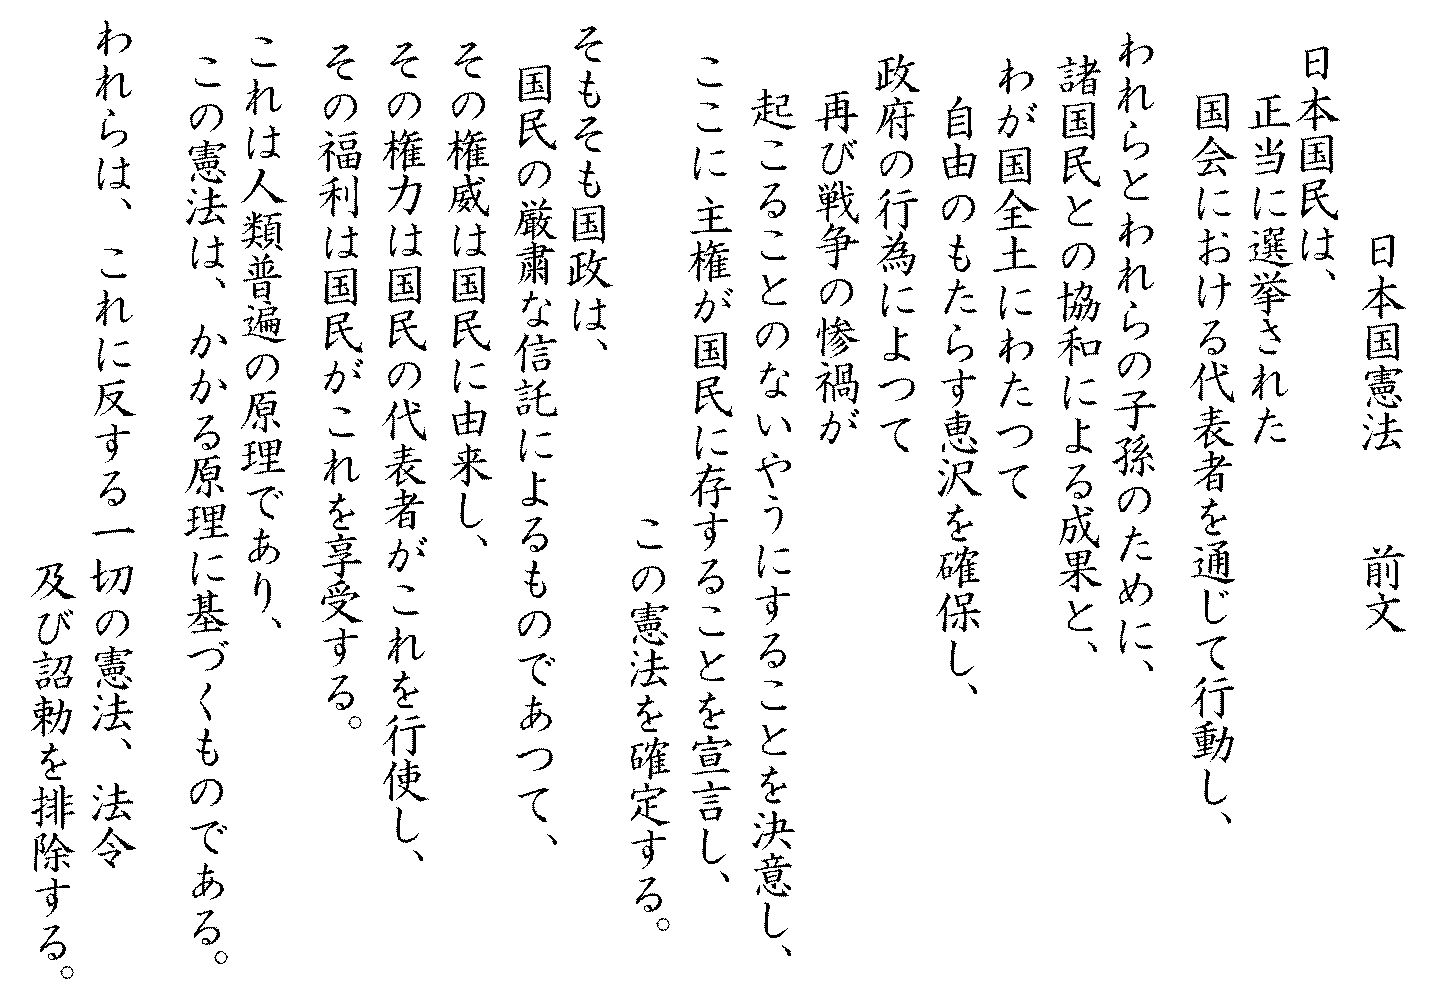 日本国憲法　前文
日本国民は、
正当に選挙された
国会における代表者を通じて行動し、
われらとわれらの子孫のために、
諸国民との協和による成果と、
わが国全土にわたつて
自由のもたらす恵沢を確保し、
政府の行為によつて
再び戦争の惨禍が
起こることのないやうにすることを決意し、
ここに主権が国民に存することを宣言し、
この憲法を確定する。
そもそも国政は、
国民の厳粛な信託によるものであつて、
その権威は国民に由来し、
その権力は国民の代表者がこれを行使し、
その福利は国民がこれを享受する。
これは人類普遍の原理であり、
この憲法は、かかる原理に基づくものである。
われらは、これに反する一切の憲法、法令
及び詔勅を排除する。